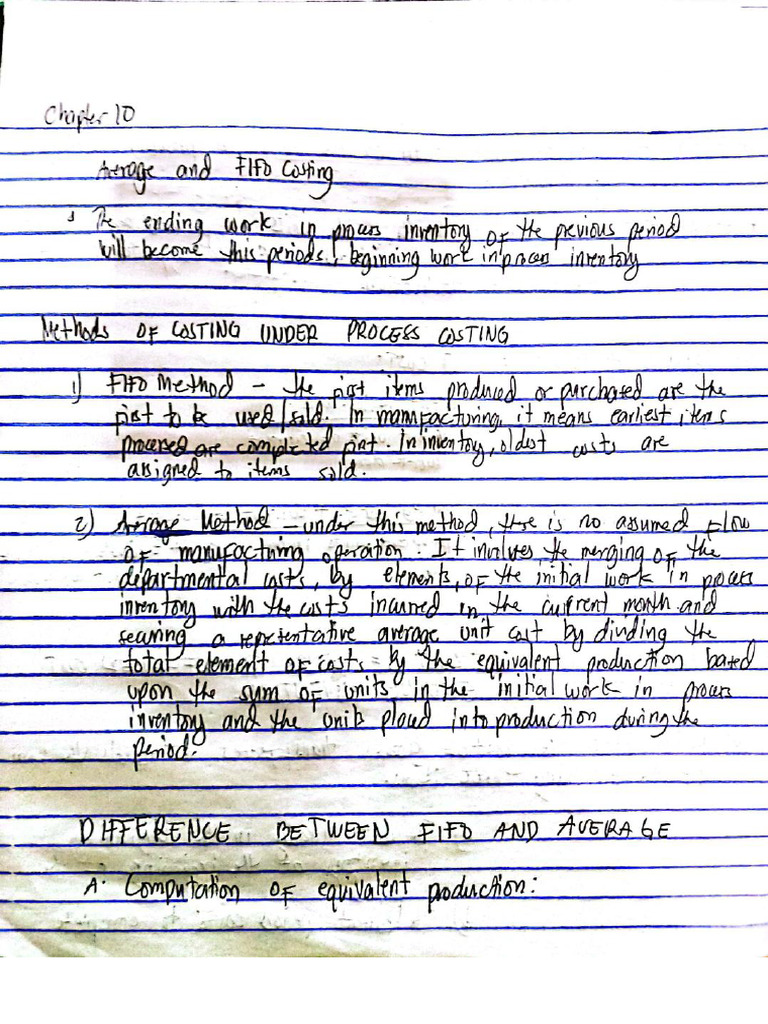 Chapter 10
Average and FIFO Costing
The ending work in process inventory of the previous period
will become this periods, beginning work in process inventory
Methods OF COSTING UNDER PROCESS COSTING
1) FIFO Method – the first items produced or purchased are the
first to be used/sold. In manufacturing, it means earliest items
processed are completed first. In inventory, oldest costs are
assigned to items sold.
2) Average Method – under this method, there is no assumed flow
of manufacturing operation. It involves, the merging of the
departmental costs, by elements, of the initial work in process
inventory with the costs incurred in the current month and
securing a representative average unit cost by dividing the
total element of costs by the equivalent production based
upon the sum of units in the initial work in process
inventory and the units placed into production during the
period.
DIFFERENCE BETWEEN FIFO AND AVERAGE
A. Computation of equivalent production: